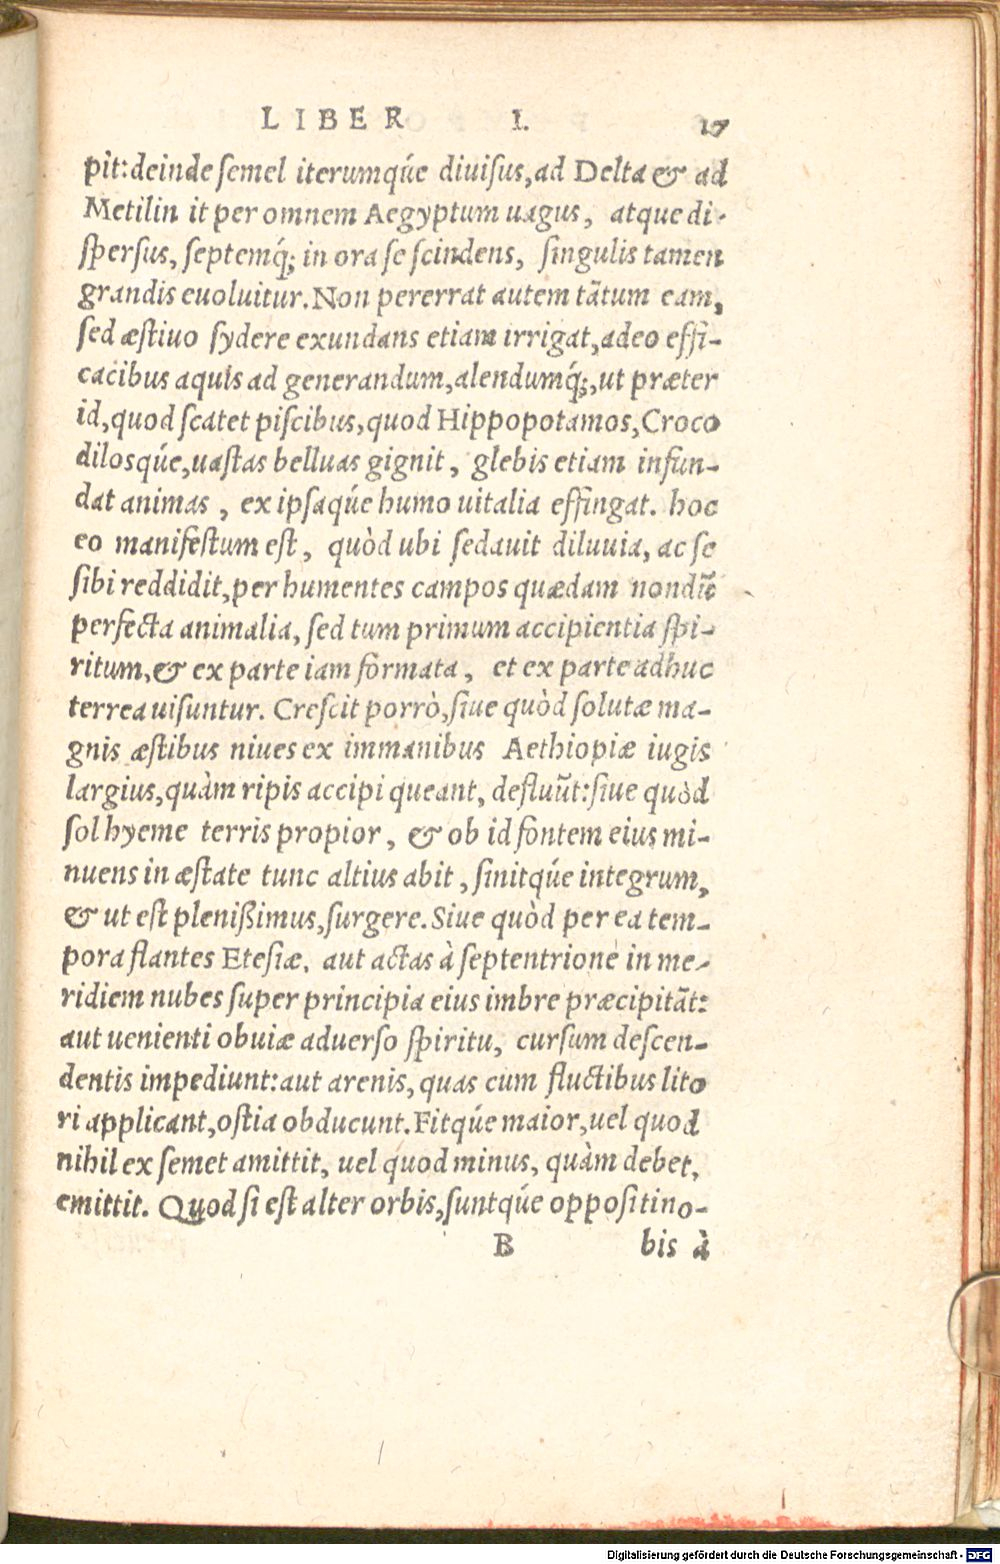 LIBER I. 17
pit: deinde ſemel iterumq́ue diuiſus, ad Delta & ad
Metilin it per omnem Aegyptum uagus, atque di-
ſperſus, ſeptemq́; in ora ſe ſcindens, ſingulis tamen
grandis euoluitur. Non pererrat autem tātum eam,
ſed æſtiuo ſydere exundans etiam irrigat, adeo effi-
cacibus aquis ad generandum, alendumq́;, ut præter
id, quod ſcatet piſcibus, quod Hippopotamos, Croco
dilosq́ue, uaſtas belluas gignit, glebis etiam infun-
dat animas, ex ipſaq́ue humo uitalia effingat. hoc
eo manifeſtum eſt, quòd ubi ſedauit diluuia, ac ſe
ſibi reddidit, per humentes campos quædam nondū
perfecta animalia, ſed tum primum accipientia ſpi-
ritum, & ex parte iam formata, et ex parte adhuc
terrea uiſuntur. Creſcit porrò, ſiue quòd ſolutæ ma-
gnis æſtibus niues ex immanibus Aethiopiæ iugis
largius, quàm ripis accipi queant, defluūt: ſiue quòd
ſol hyeme terris propior, & ob id fontem eius mi-
nuens in æſtate tunc altius abit, ſinitq́ue integrum,
& ut eſt plenißimus, ſurgere. Siue quòd per ea tem-
pora flantes Eteſiæ, aut actas à ſeptentrione in me-
ridiem nubes ſuper principia eius imbre præcipitāt:
aut uenienti obuiæ aduerſo ſpiritu, curſum deſcen-
dentis impediunt: aut arenis, quas cum fluctibus lito
ri applicant, oſtia obducunt. Fitq́ue maior, uel quod
nihil ex ſemet amittit, uel quod minus, quàm debet,
emittit. Quod ſi eſt alter orbis, ſuntq́ue oppoſiti no-
B bis à
Digitalisierung gefördert durch die Deutsche Forschungsgemeinschaft - DFG